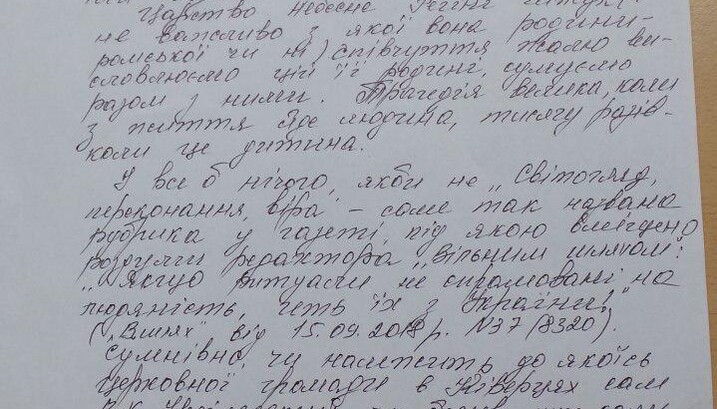 Царство небесне
не важливо з якої вона родини-
ромської чи ні) співчуття жалю ви-
словлюємо цій її родині, сумуємо
разом з ними. Трагедія велика, коли
з життя йде людина, тисячу разів-
коли це дитина.
І все б нічого, якби не „Світогляд,
переконання, віра" - саме так названа
рубрика у газеті, під якою вміщено
роздуми редактора „Вільним шляхом":
„Якщо ритуали не спрямовані на
людяність, геть їх з України!"
(„Вшлях" від 15.09.2018р. N37 (8320).
Сумнівно, чи належить до якоїсь
церковної громади в Ківерцях сам